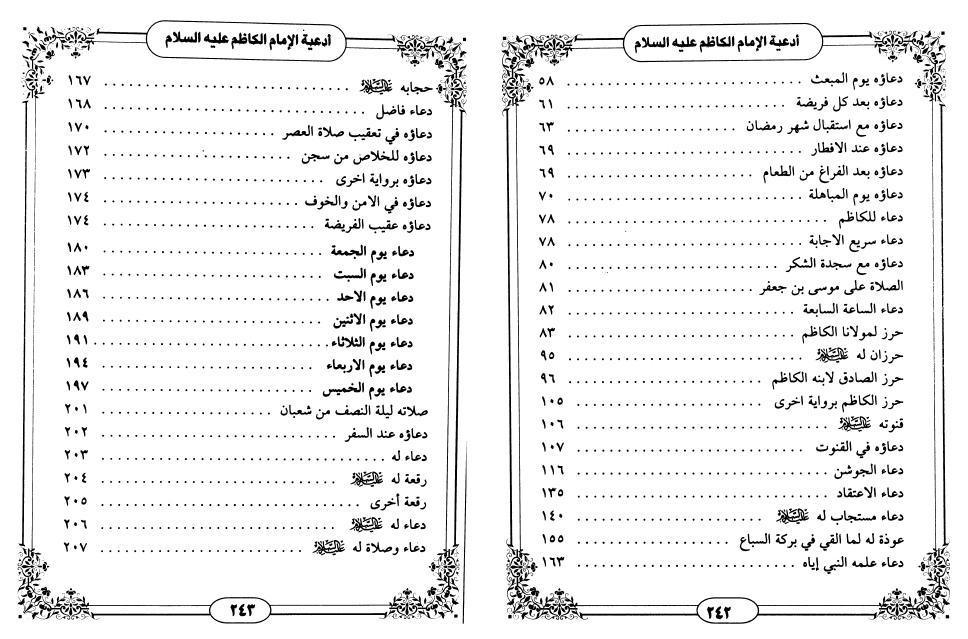 أدعية الإمام الكاظم عليه السلام
دعاؤه يوم المبعث ٥٨
دعاؤه بعد كل فريضة ٦١
دعاؤه مع استقبال شهر رمضان ٦٣
دعاؤه عند الافطار ٦٩
دعاؤه بعد الفراغ من الطعام ٦٩
دعاؤه يوم المباهلة ٧٠
دعاء للكاظم ٧٨
دعاء سريع الاجابة ٧٨
دعاؤه مع سجدة الشكر ٨٠
الصلاة على موسى بن جعفر ٨١
دعاء الساعة السابعة ٨٢
حرز لمولانا الكاظم ٨٣
حرزان له عليه السلام ٩٥
حرز الصادق لابنه الكاظم ٩٦
حرز الكاظم برواية اخرى ١٠٥
قنوته عليه السلام ١٠٦
دعاؤه في القنوت ١٠٧
دعاء الجوشن ١١٦
دعاء الاعتقاد ١٣٥
دعاء مستجاب له عليه السلام ١٤٠
عوذة له لما القي في بركة السباع ١٥٥
دعاء علمه النبي إياه ١٦٣
٢٤٢
أدعية الإمام الكاظم عليه السلام
حجابه عليه السلام ١٦٧
دعاء فاضل ١٦٨
دعاؤه في تعقيب صلاة العصر ١٧٠
دعاؤه للخلاص من سجن ١٧٢
دعاؤه برواية اخرى ١٧٣
دعاؤه في الامن والخوف ١٧٤
دعاؤه عقيب الفريضة ١٧٤
دعاء يوم الجمعة ١٨٠
دعاء يوم السبت ١٨٣
دعاء يوم الاحد ١٨٦
دعاء يوم الاثنين ١٨٩
دعاء يوم الثلاثاء ١٩١
دعاء يوم الاربعاء ١٩٤
دعاء يوم الخميس ١٩٧
صلاته ليلة النصف من شعبان ٢٠١
دعاؤه عند السفر ٢٠٢
دعاء له ٢٠٣
رقعة له عليه السلام ٢٠٤
رقعة أخرى ٢٠٥
دعاء له عليه السلام ٢٠٦
دعاء وصلاة له عليه السلام ٢٠٧
٢٤٣